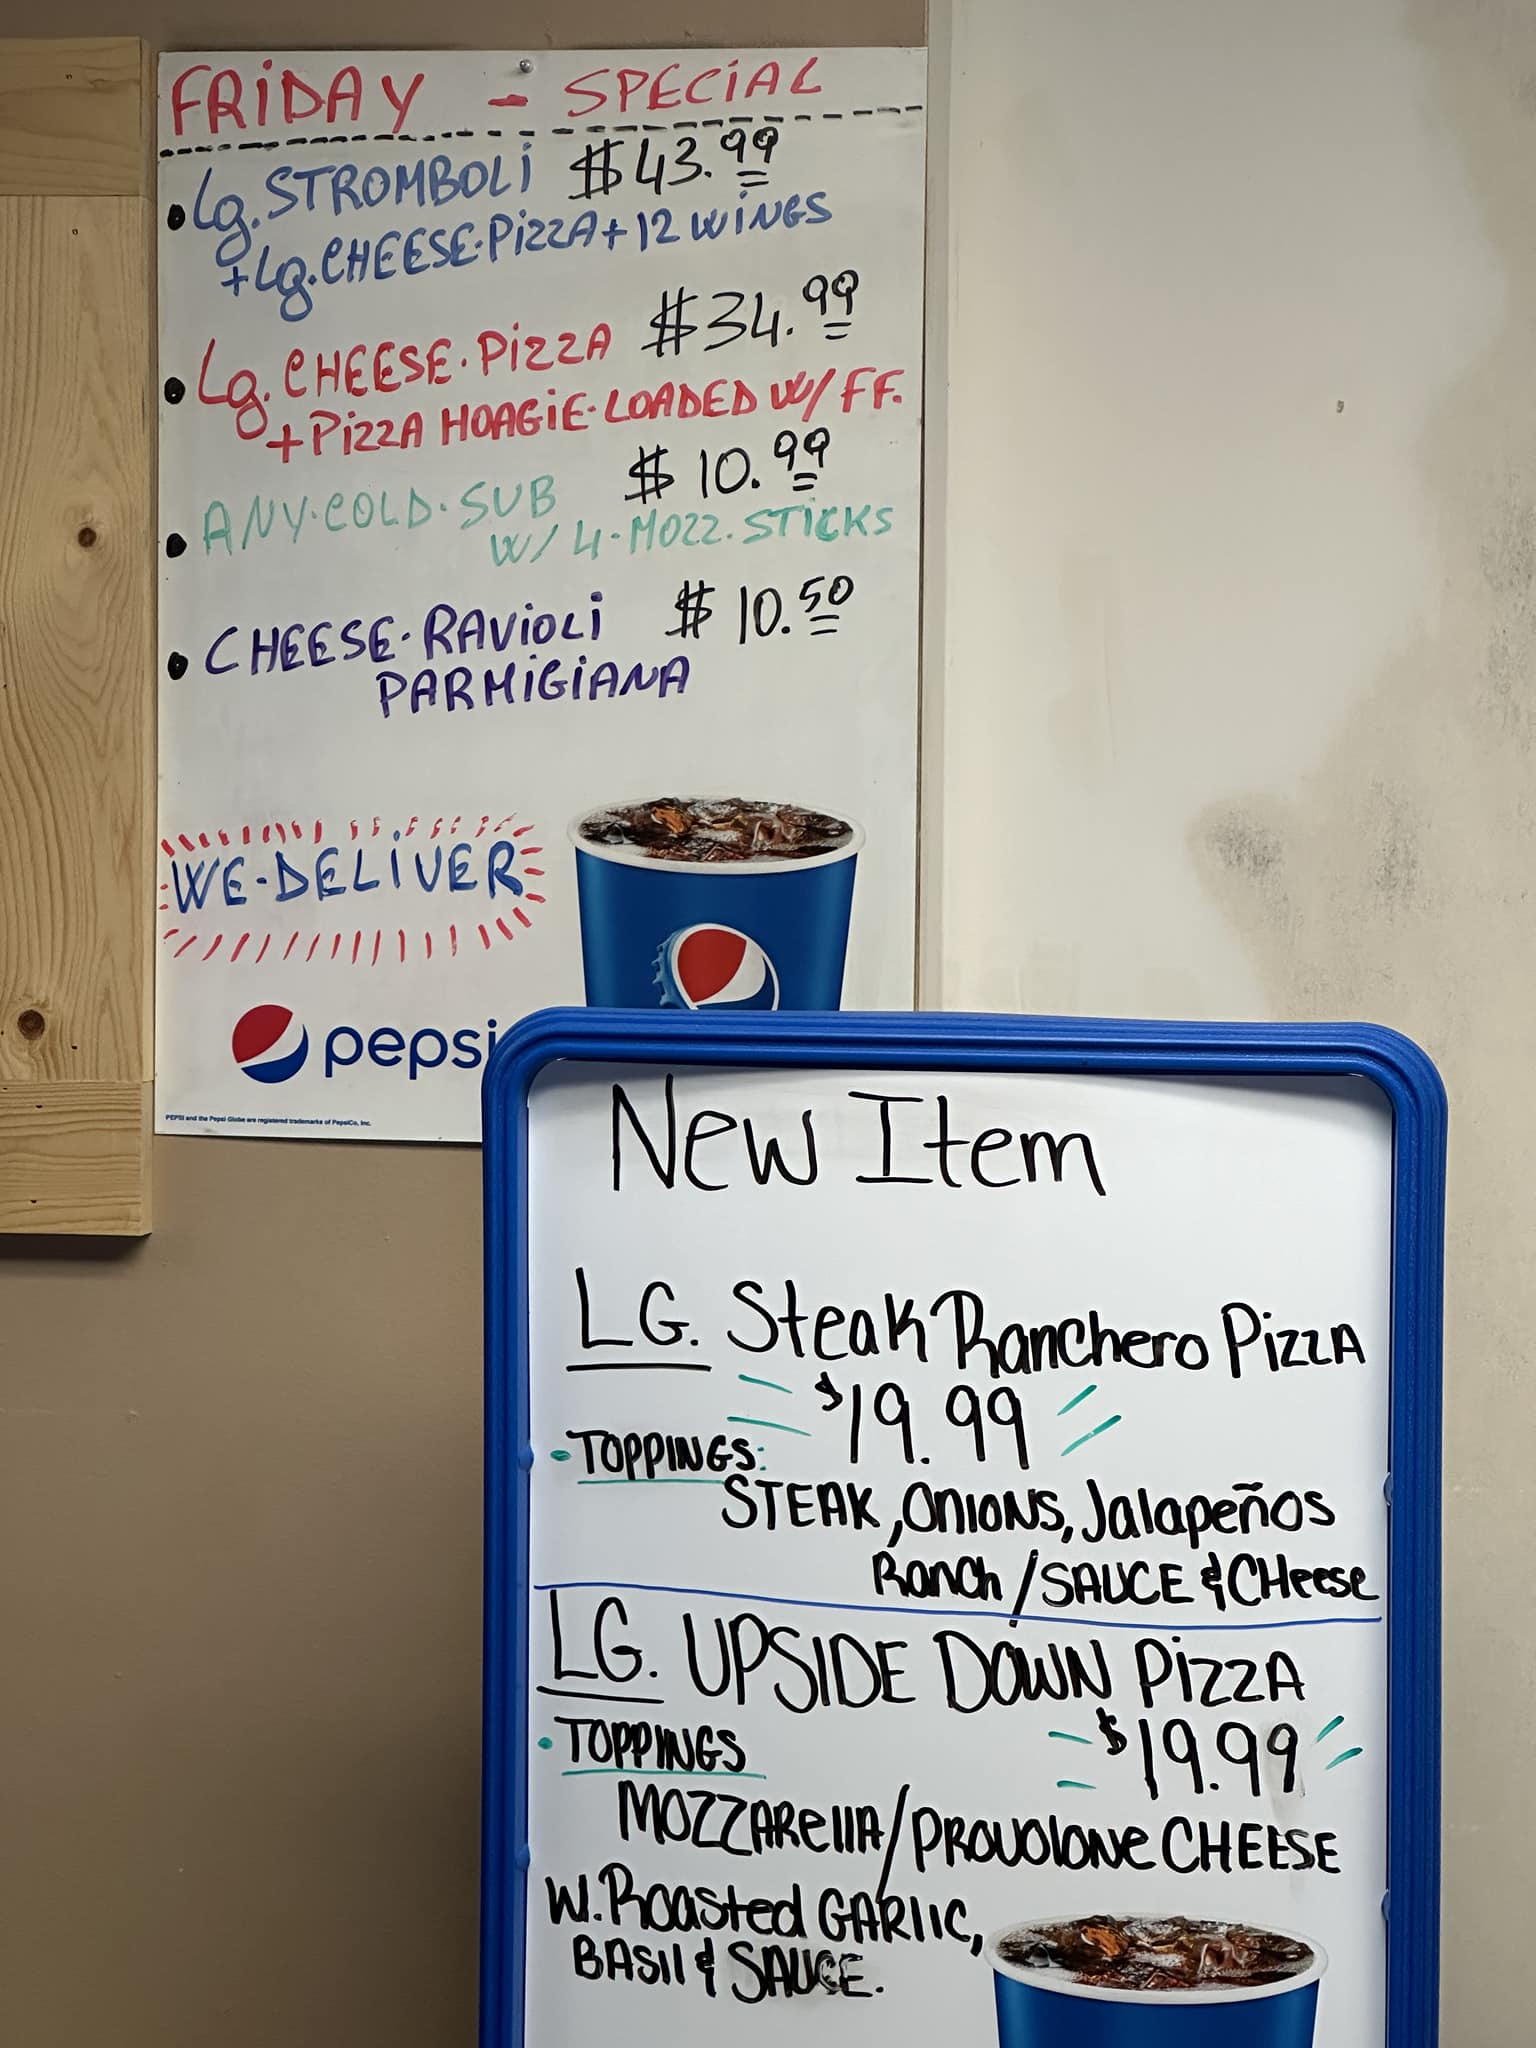 FRiDAY - SPECiAL
• Lg. STROMBOLi $43.99
+ Lg. CHEESE·PiZZA + 12 WiNGS
• Lg. CHEESE·PiZZA $34.99
+ PiZZA HOAGiE·LOADED W/ FF.
• ANY·COLD·SUB $10.99
W/ 4·MOZZ. STiCKS
• CHEESE·RAViOLi $10.50
PARMiGiANA
WE·DELiVER
pepsi
PEPSI and the Pepsi Globe are registered trademarks of PepsiCo, Inc.
New Item
LG. Steak Ranchero PizzA
$19.99
• TOPPINGS:
STEAK, ONIONS, Jalapeños
Ranch / SAUCE & CHeese
LG. UPSIDE DOWN PiZZA
• TOPPINGS $19.99
MOZZARellA / PROVOlONe CHEESE
W. Roasted GARlIC,
BASIl & SAUCE.